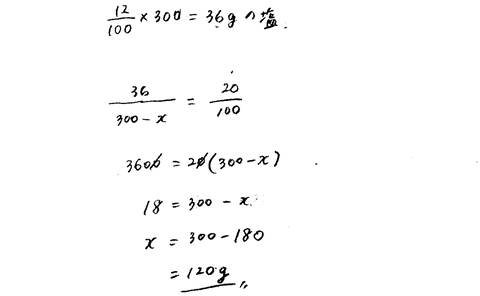 12/100 × 300 = 36g の塩
36/(300 - x) = 20/100
3600 = 20(300 - x)
18 = 300 - x
x = 300 - 180
= 120g